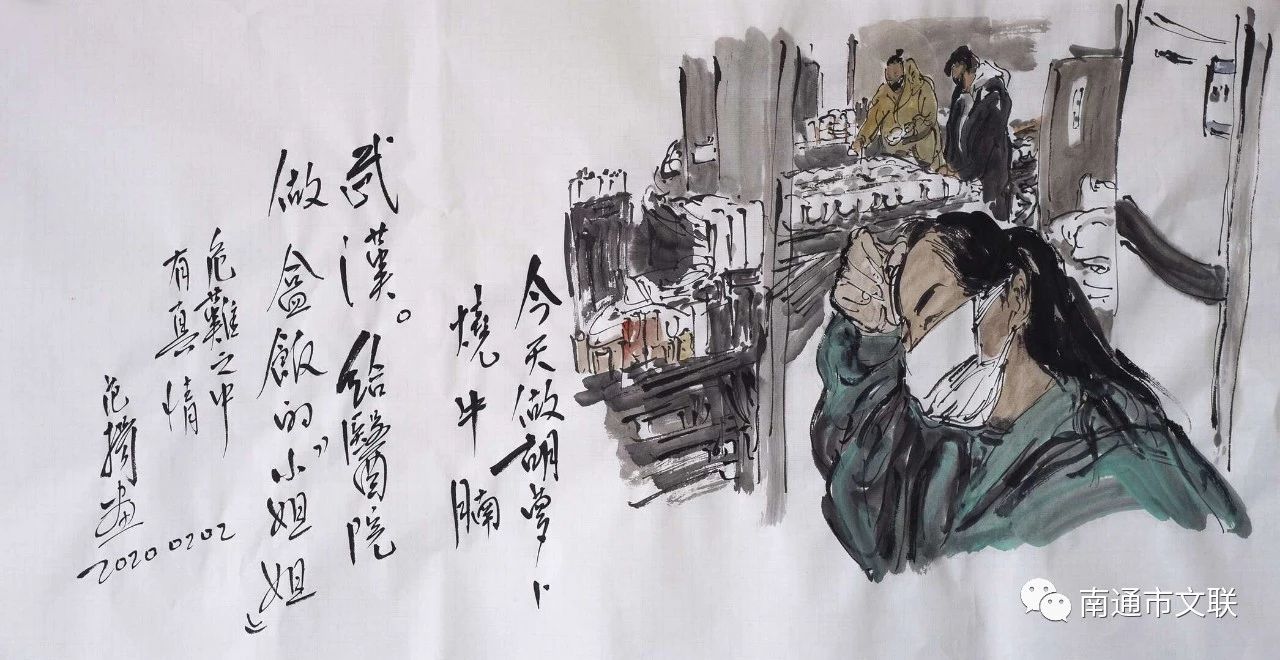 今天做胡萝卜
燒牛腩
武漢。給醫院
做盒飯的“小姐姐”
危難之中
有真情
范揚画
2020 0202
南通市文联